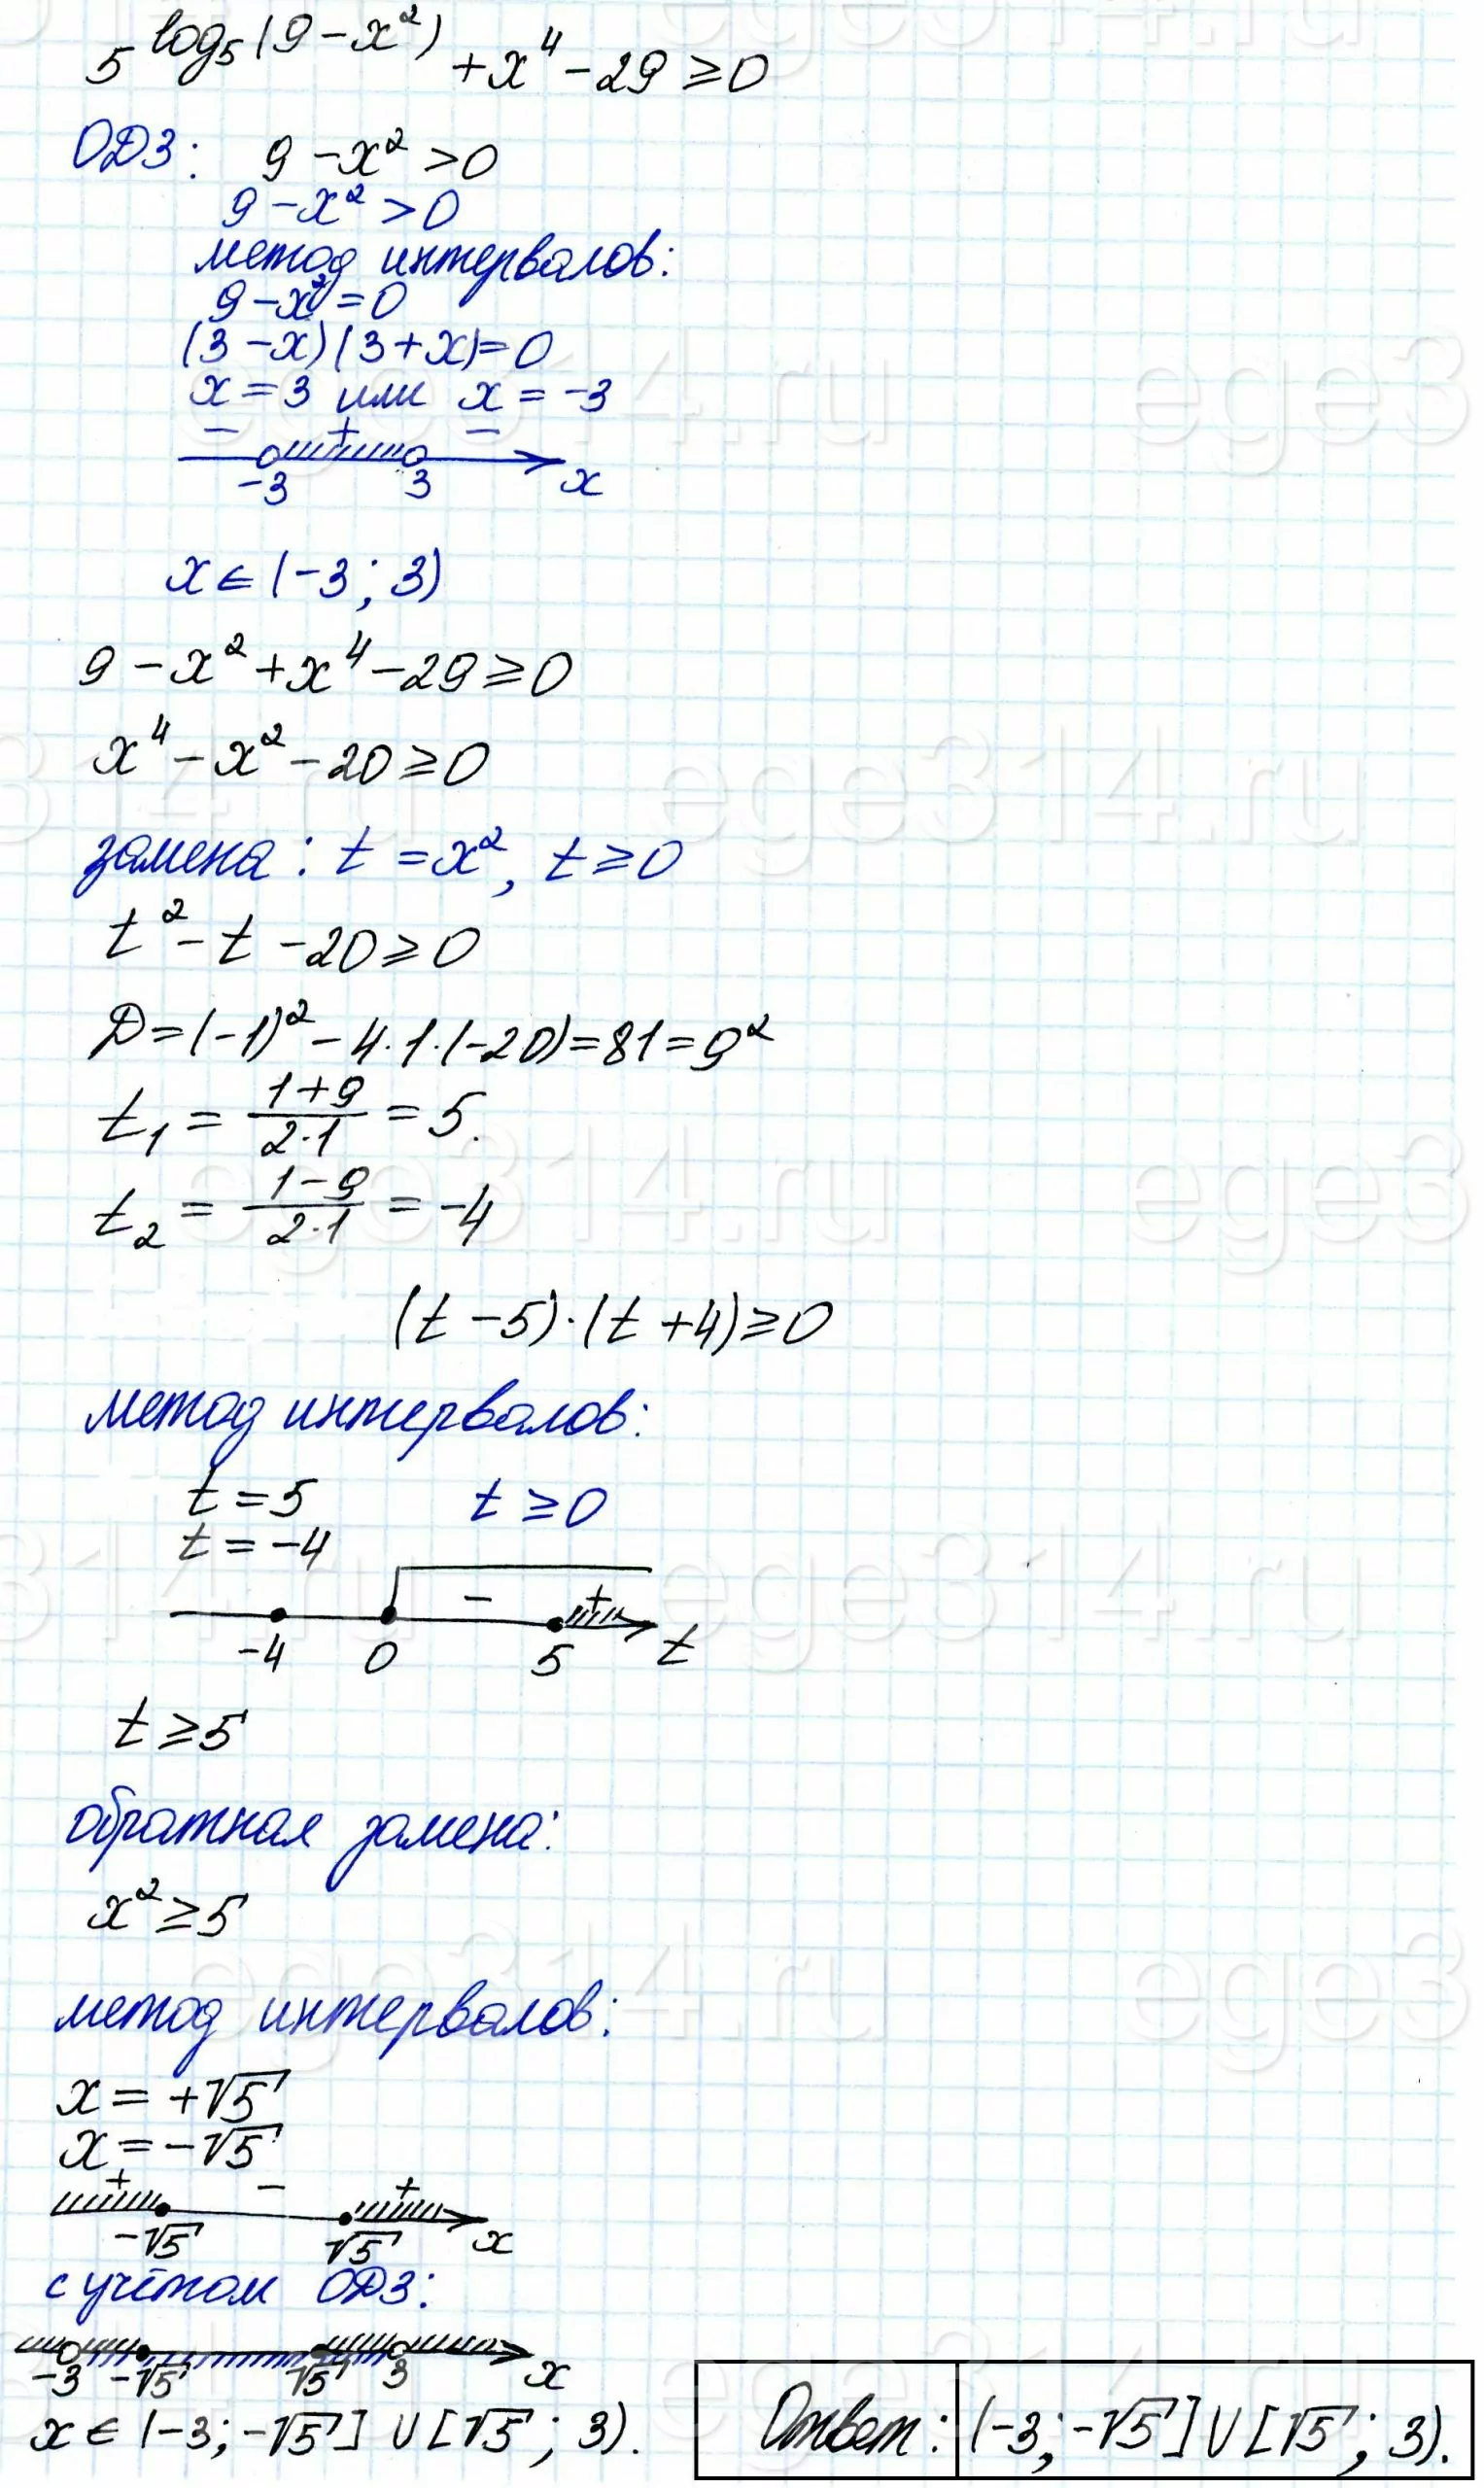 5^(log₅(9-x²)) + x⁴ - 29 ≥ 0
ОДЗ: 9 - x² > 0
9 - x² > 0
метод интервалов:
9 - x² = 0
(3 - x)(3 + x) = 0
x = 3 или x = -3
- + -
-3 3 x
x ∈ (-3; 3)
9 - x² + x⁴ - 29 ≥ 0
x⁴ - x² - 20 ≥ 0
замена: t = x², t ≥ 0
t² - t - 20 ≥ 0
D = (-1)² - 4·1·(-20) = 81 = 9²
t₁ = (1+9)/(2·1) = 5.
t₂ = (1-9)/(2·1) = -4
(t - 5)·(t + 4) ≥ 0
метод интервалов:
t = 5 t ≥ 0
t = -4
- +
-4 0 5 t
t ≥ 5
обратная замена:
x² ≥ 5
метод интервалов:
x = +√5
x = -√5
+ - +
-√5 √5 x
с учётом ОДЗ:
-3 -√5 √5 3 x
x ∈ (-3; -√5] ∪ [√5; 3).
Ответ: (-3; -√5] ∪ [√5; 3).
ege314.ru